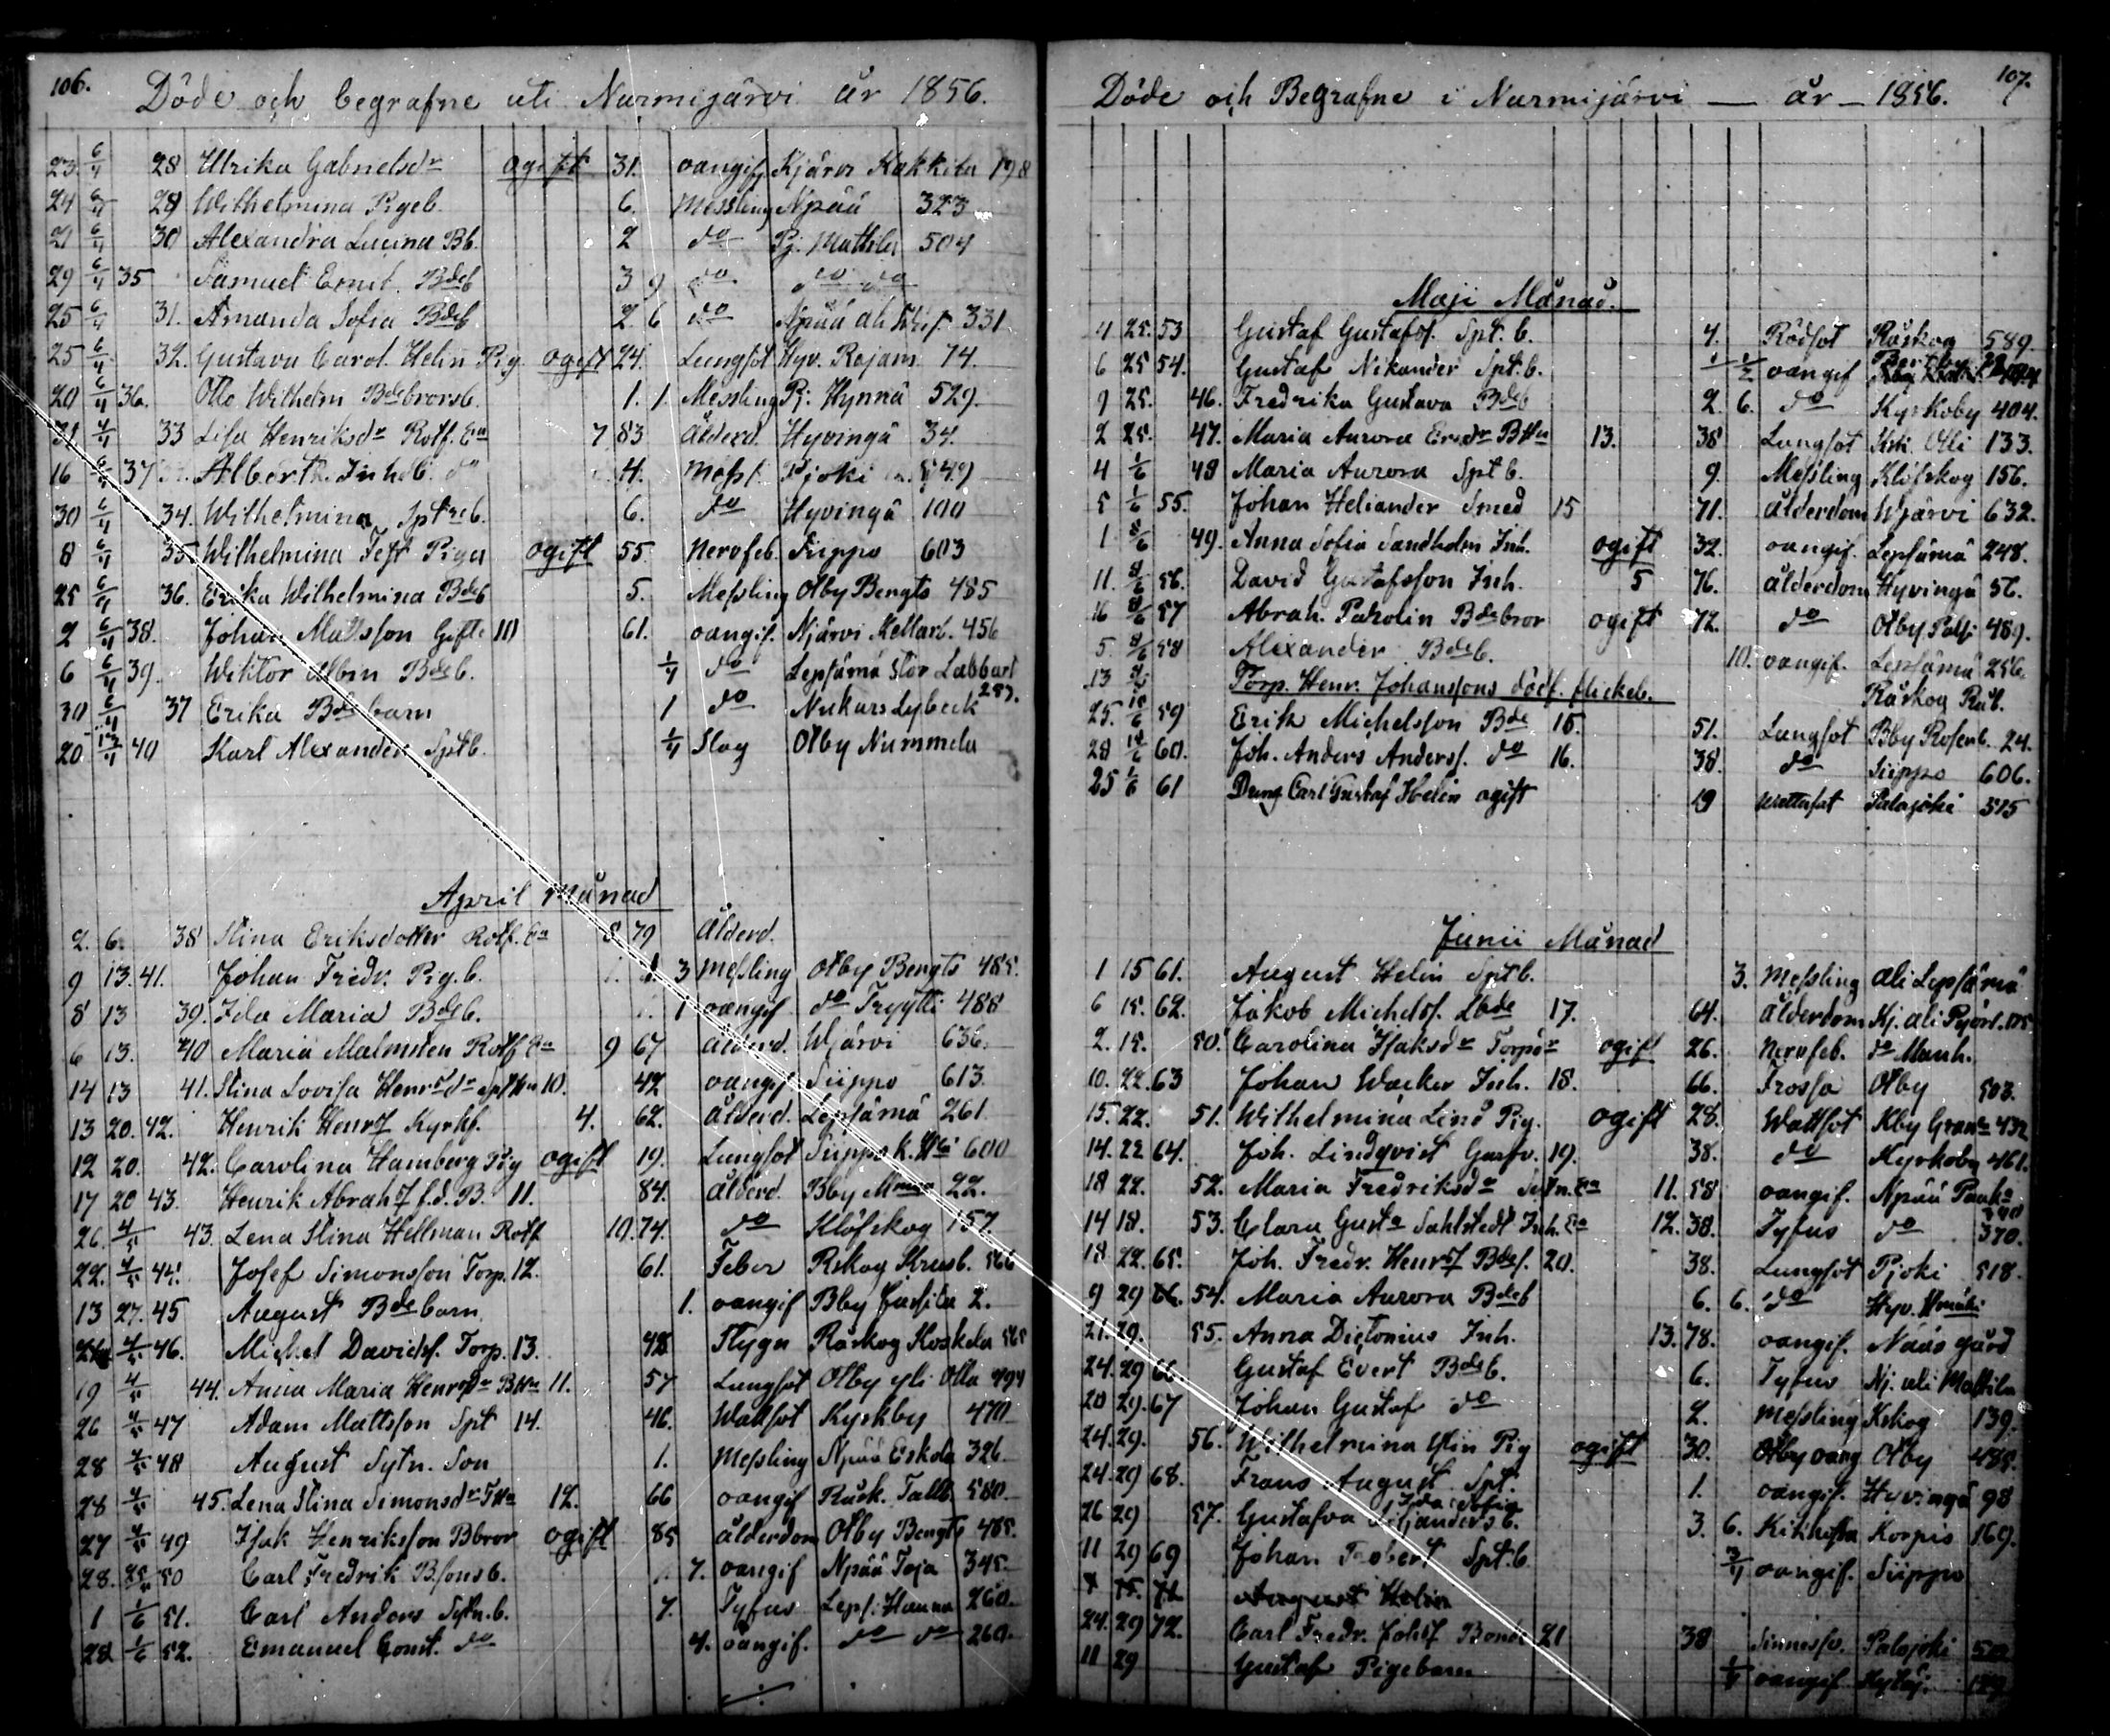 106.
Döde och begrafne uti Nurmijärvi år 1856.
23 6/4 28 Ulrika Gabrielsdr ogift 31. oangif. Kjärvi 198
24 6/4 29 Wilhelmina Pigeb. 6. Messling Npää 323
21 6/4 30 Alexandra Lucina Bb. 2 do Pj. Mattila 504
29 6/4 35 Samuel Ernst. Bdeb 3 9 do do do
25 6/4 31. Amanda Sofia Bdeb 2 6 do Npää ali 331
25 6/4 32. Gustava Carol. Helin Pig. ogift 24. Lungsot Hyv. Rajam 74.
20 6/4 36. Otto Wilhelm Bdebrorsb. 1. 1 Messling Pj. Hynnä 529.
6/4 33 Lisa Henriksdr Rotf. Ea 7 83 Ålderd. Hyvingä 34.
16 6/4 37 Albert Inhsb. 4. Messl. Pjoki 549
30 6/4 34. Wilhelmina Sptreb. 6. do Hyvingä 100
8 6/4 35 Wilhelmina Piga ogift 55. Nervfeb. Siippo 603
25 6/4 36. Erika Wilhelmina Bdeb 5. Messling Olby Bengts 485
2 6/4 38. Johan Mattsson Gift 10 61. oangif. Njärvi Kellari. 456
6 6/4 39. Wiktor Albin Bdeb. 1/4 do Lepsämä Stor Labbart
30 6/4 37 Erika Bdebarn 1 do Nukars Lybeck 287.
20 13/4 40 Karl Alexander Sptb. 1/4 Slag Olby Nummela
April Månad
2. 6. 38 Stina Eriksdotter Rotf. Ea 8 79 Ålderd.
9 13. 41. Johan Fredr. Pig. b. 3 Messling Olby Bengts 485.
8 13 39. Ida Maria Bdeb. 1 oangif do Fryytti 488
6 13. 40 Maria Malmsten Rotf Ea 9 67 Ålderd. Wjärvi 636.
14 13 41. Stina Lovisa Henrsdr 10. 42 oangif Siippo 613.
13 20. 42. Henrik Henrs Kyrkf. 4. 62. Ålderd. Lepsämä 261
12 20. 42. Carolina Hamberg Pig ogift 19. Lungsot Siippo 600
17 20 43. Henrik Abrahs f.d. B. 11. 84. Ålderd. Bby 22.
26. 4/5 43. Lena Stina Hellman Rotf 10. 74. do Klöfskog 157.
22. 4/5 44. Josef Simonsson Torp. 12. 61. Feber Rskog Krusb. 566
13 27. 45 August Bdebarn 1. oangif Bby Jussila 2.
4/5 46. Michel Davids. Torp. 13. 48 Flygn Röskog Koskela 565
19 4/5 44. Anna Maria Henrsdr 11. 57 Lungsot Olby yli Olla 494
26 4/5 47 Adam Mattsson Spt 14. 46. Wattsot Kyrkby 470
28 4/5 48 August Sytn. Son 1. Messling Npää Eskola 326
28 4/5 45. Lena Stina Simonsdr 12. 66 oangif Rösk. Tallb. 580
27 4/5 49 Isak Henriksson Bbror ogift 85 Ålderdom Olby Bengts 485.
28. 25/5 50 Carl Fredrik Bsonsb. 7. oangif Npää Toja 345.
1 1/6 51. Carl Anders Sytn. b. 7. Tyfus Leps. Hanna 260.
28 1/6 52. Emanuel Const. do 4. oangif. do do 260.
107.
Döde och Begrafne i Nurmijärvi — år — 1856.
Maji Månad.
4 25. 53 Gustaf Gustafs. Spt. b. 4. Rödsot Röskog 589.
6 25 54. Gustaf Nikander Spt. b. 1/2 oangif
9 25. 46. Fredrika Gustava Bdeb 2. 6. do Kyrkoby 404.
2 25. 47. Maria Aurora Ersdr 13. 38 Lungsot Olli 133.
4 1/6 48 Maria Aurora Spt b. 9. Messling Klöfskog 156.
5 1/6 55. Johan Heliander Smed 15 71. Ålderdom Wjärvi 632.
1 8/6 49. Anna Sofia Sandholm Inh. ogift 32. oangif. Lepsämä 248.
11. 8/6 56. David Gustafsson Inh. 5 76. Ålderdom Hyvingä 56.
16 8/6 57 Abrah. Parolin Bdebror ogift 72. do Olby 489.
5. 8/6 58 Alexander Bdeb. 10. oangif. Lepsämä 256.
13 Torp. Henr. Johanssons dödf. flickeb. Röskog
25. 15/6 59 Erik Michelsson Bde 15. 51. Lungsot Bby Rosenb. 24.
28 15/6 60. Joh. Anders Anders. do 16. 38. do Siippo 606.
25 1/6 61 Dreng Carl Gustaf Helin ogift 19 Wattusot Palajoki 515
Junii Månad
1 15 61. August Helin Sptb. 3. Messling Ali Lepsämä
6 15. 62. Jakob Michels. 17. 64. Ålderdom Kj. Ali
2. 15. 50. Carolina Isaksdr Torpdr ogift 26. Nervfeb. do Manh.
10. 22. 63 Johan Wacker Inh. 18. 66. Frossa Olby 503.
15. 22. 51. Wilhelmina Lind Pig. ogift 28. Wattsot Kby 432
14. 22 64. Joh. Lindqvist Garfv. 19. 38. do Kyrkoby 461.
18 22. 52. Maria Fredriksdr Ea 11. 58 oangif. Npää
14 18. 53. Clara Gusta Sahlstedt Inh. Ea 12. 38. Tyfus do 370.
18. 22. 65. Joh. Fredr. Henrs Bdes. 20. 38. Lungsot Pjoki 518.
9 29 54. Maria Aurora Bdeb 6. 6. do Hyv.
21. 29. 55. Anna Dictonius Inh. 13. 78. oangif. Naäs gård
24. 29 66. Gustaf Evert Bdeb. 6. Tyfus Nj. ali Mattila
20 29. 67 Johan Gustaf do 2. Messling Kskog 139.
24. 29. 56. Wilhelmina Pig ogift 30. Olby oang Olby 485.
24. 29 68. Frans August. Spt. 1. oangif. Hyvingä 98
26 29 57. Gustafva Ida Sofia 3. 6. Kikhosta Korpis 160.
11 29 69 Johan Robert Spt. b. 3/4 oangif. Siippo
August Helin
24. 29 72. Carl Fredr. Johs Bonde 21 38 Palojoki
11 29 Gustaf Pigebarn oangif.